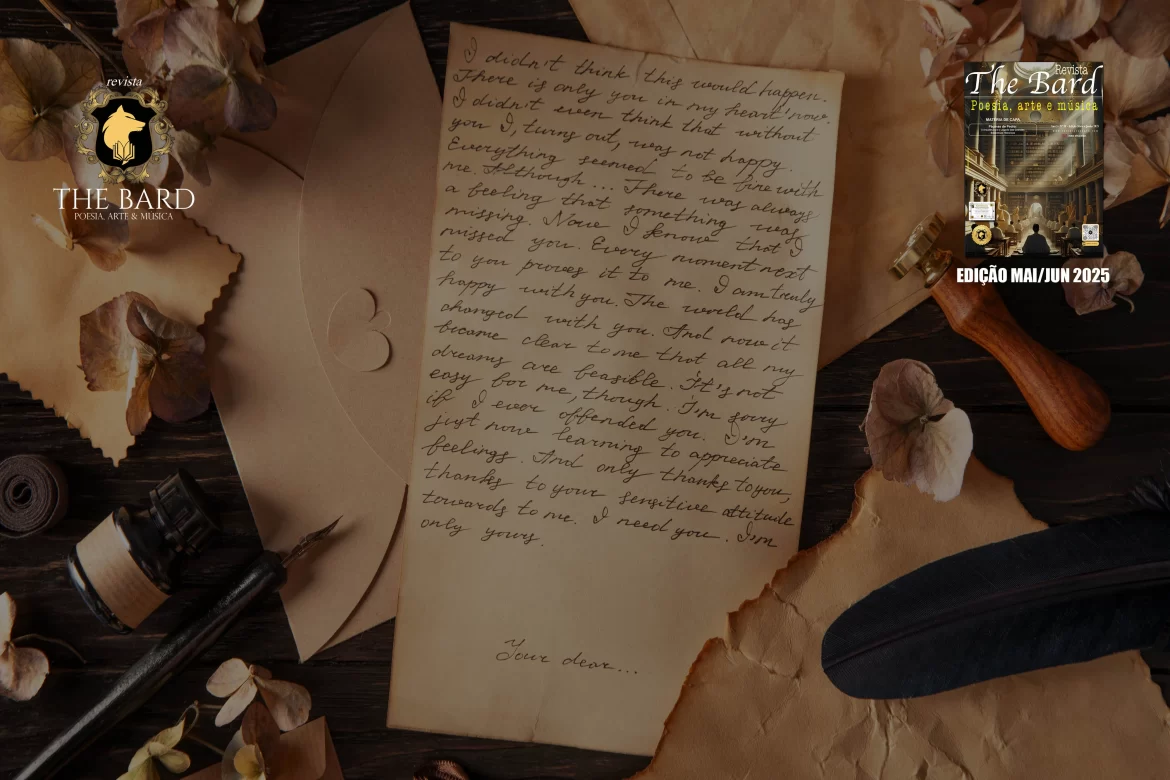 revista
THE BARD
POESIA, ARTE & MUSICA
I didn't think this would happen.
There is only you in my heart now.
I didn't even think that without
you I, turns out, was not happy.
Everything seemed to be fine with
me. Although... There was always
a feeling that something was
missing. Now I know that I
missed you. Every moment next
to you proves it to me. I am truly
happy with you. The world has
changed with you. And now it
became clear to me that all my
dreams are feasible. It's not
easy for me, though. I'm sorry
if I ever offended you. I'm
just now learning to appreciate
feelings. And only thanks to you,
thanks to your sensitive attitude
towards to me. I need you. I'm
only yours.
Your dear...
Revista
The Bard
Poesia, arte e música
MATÉRIA DE CAPA
EDIÇÃO MAI/JUN 2025